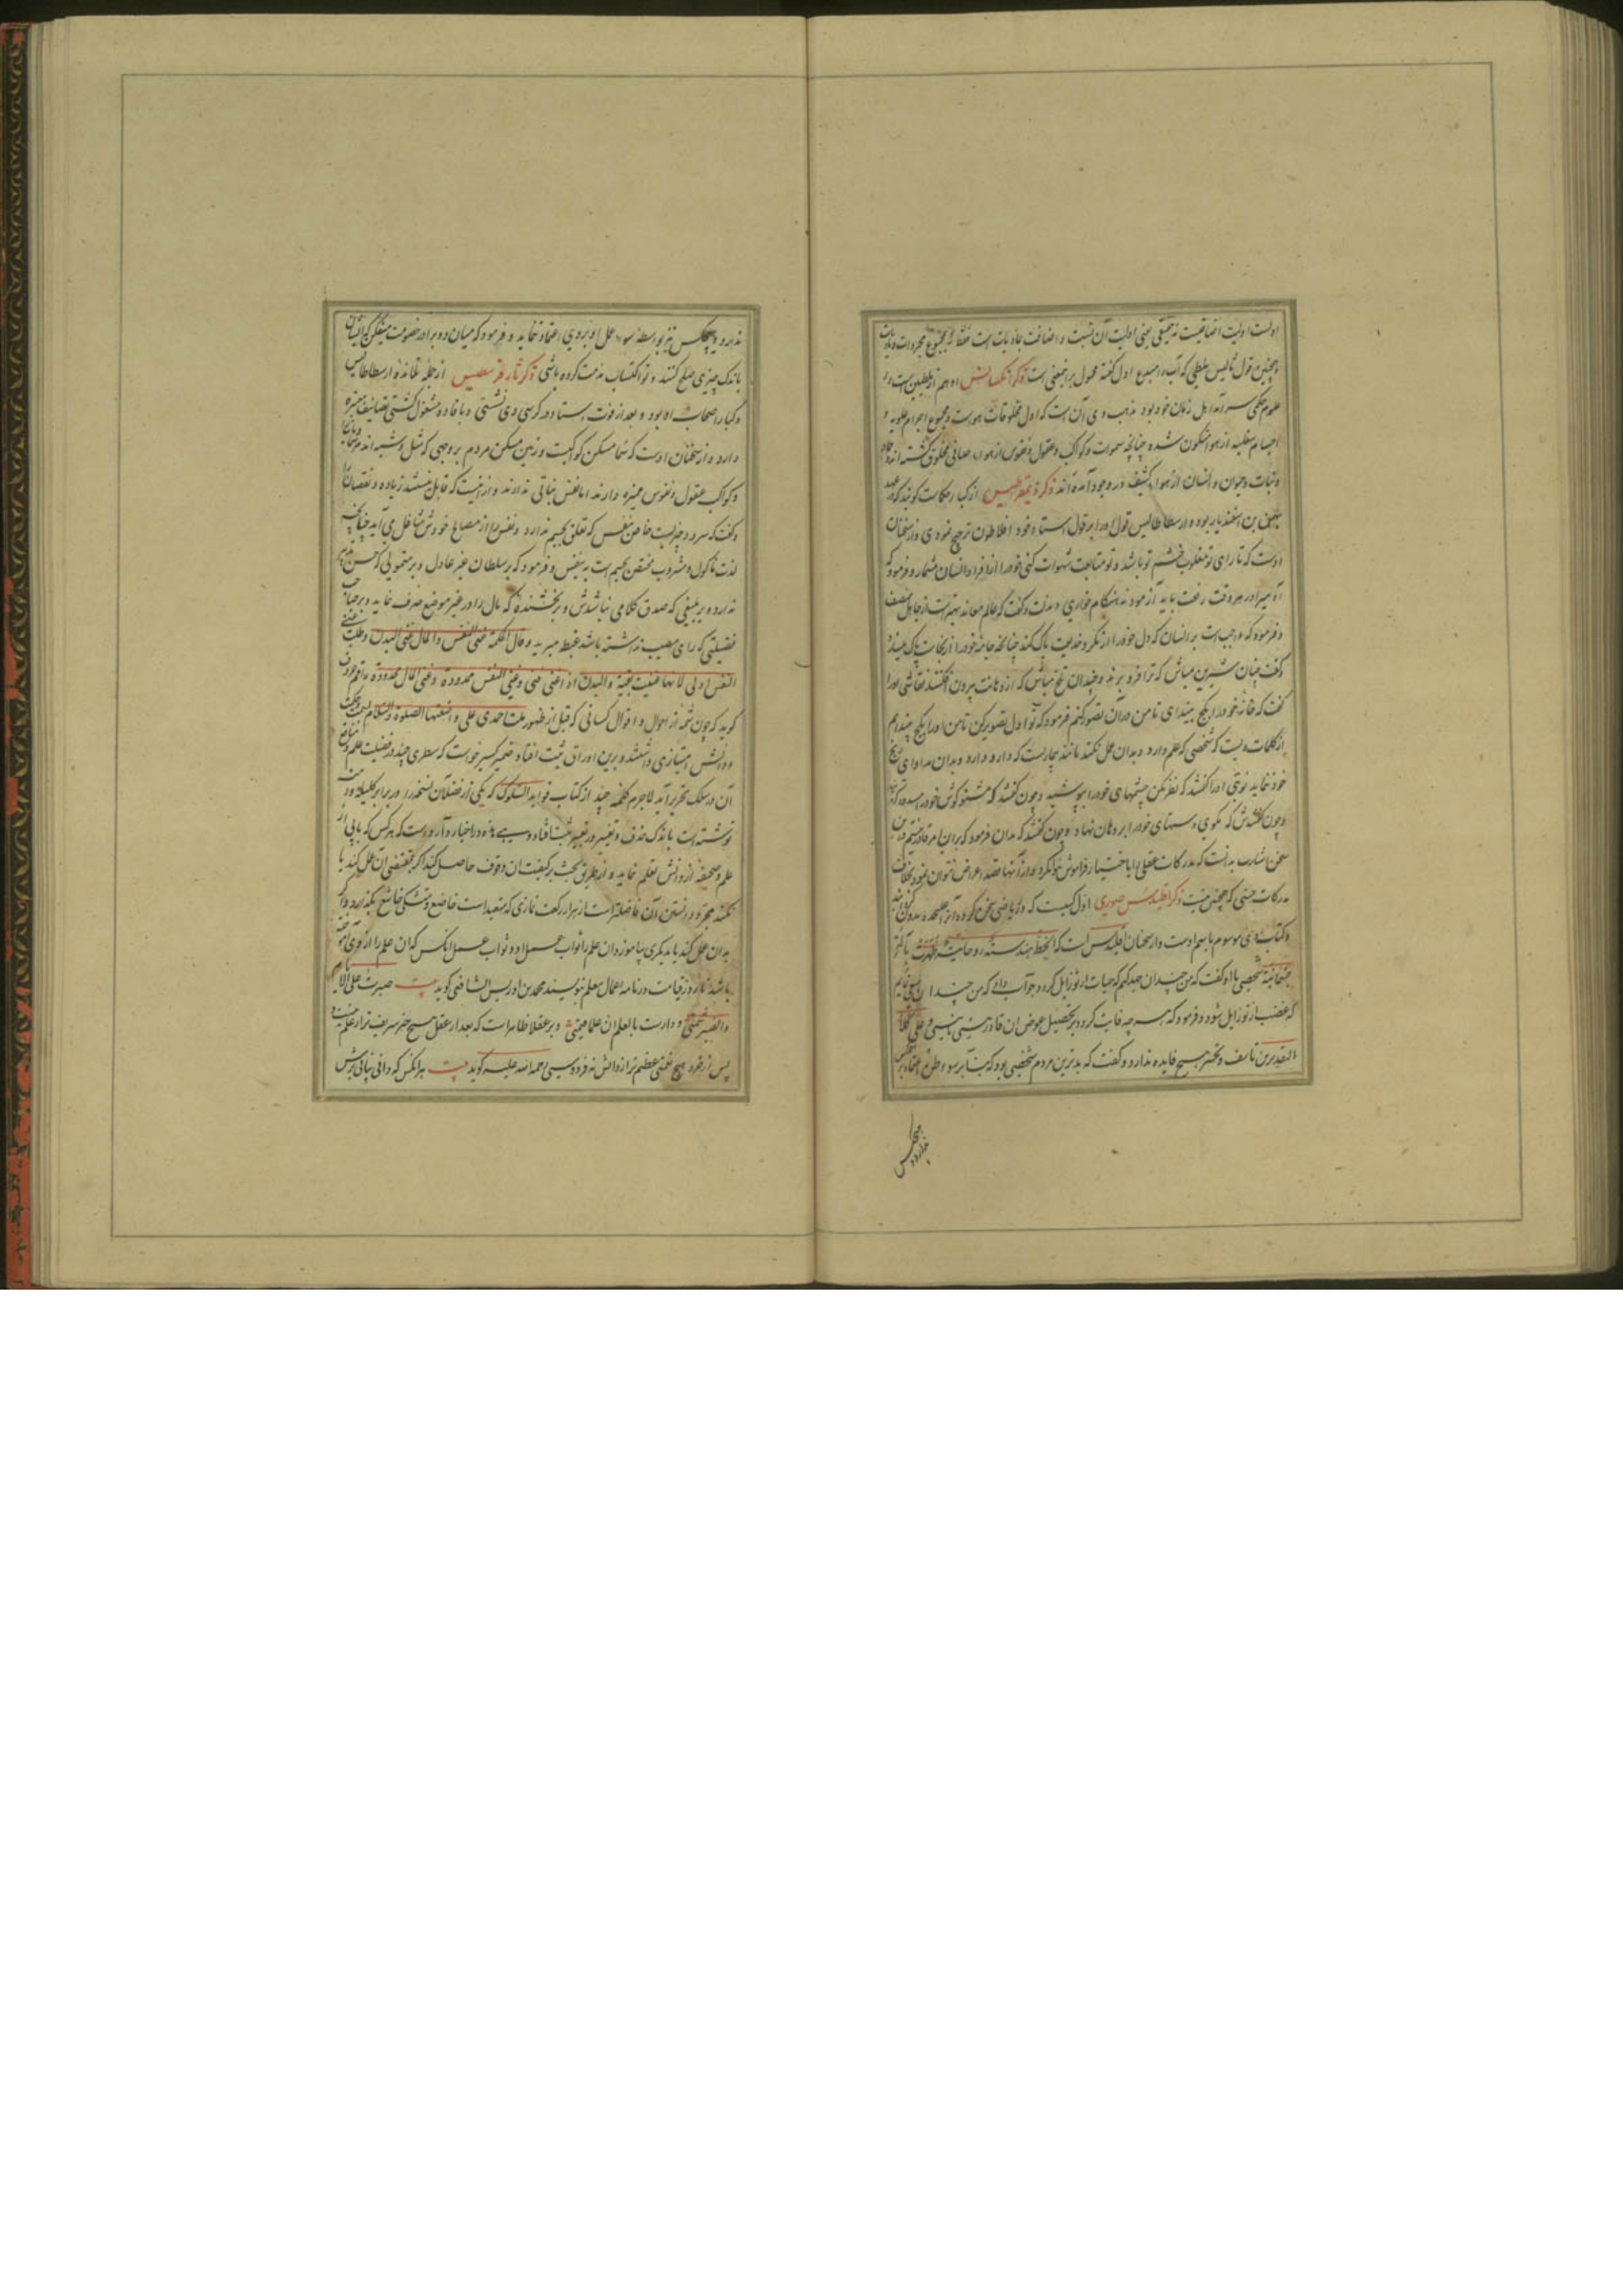 اولست اولیت اضافیست نه حقیقی یعنی اولیت آن نسبت و اضافت بمادیات است فقط نه بمجموع مجردات و مادیات
و همچنین قول ثالیس ملطی که آب را مبدع اول گفته محمول برهمین معنی است ذکر انکسیمانس او هم از ملطیین است و در
علوم حکمی سرآمد اهل زمان خود بود مذهب وی آن است که اول مخلوقات هواست و مجموع اجرام علویه و
اجسام سفلیه از هوا متکون شده چنانچه سموات و کواکب و عقول و نفوس از هواء صافی مخلوق گشته‌اند و جماد
و نبات و حیوان و انسان از هواء کثیف در وجود آمده‌اند ذکر ذیمقراطیس از کبار حکماست گویند که در عهد
بهمن بن اسفندیار بود و ارسطاطالیس قول او را بر قول استاد خود افلاطون ترجیح نمودی و از سخنان
اوست که تا رای تو مغلوب خشم تو باشد و تو متابعت شهوات کنی خود را از افراد انسان مشمار و فرمود که
آدمی را در هر وقت رفعت باید آزمود نه هنگام خواری و مذلت و گفت که عالم معاند بهتر است از جاهل منصف
و فرمود که واجب است بر انسان که دل خود را از مکر و خدیعت پاک کند چنانچه جامه خود را از نجاسات پاک میسازد
و گفت چنان شیرین مباش که ترا فرو برند و چندان تلخ مباش که از دهانت بیرون افکنند نقاشی او را
گفت که خانه خود را بگچ بیندای تا من در آن تصویر کنم فرمود که تو اول تصویر کن تا من او را بگچ بیندایم
از کلمات ویست که شخصی که علم دارد و بدان عمل نکند مانند بیماریست که دارو دارد و بدان مداوای رنج
خود ننماید نوبتی او را گفتند که نظر مکن چشمهای خود را بپوشید و چون گفتند که مشنو گوش خود را مسدود کرد
و چون گفتندش که مگوی دستهای خود را بر دهان نهاد و چون گفتند که مدان فرمود که بر این امر قادر نیستم و این
سخن اشارت بدانست که مدرکات عقلی را باختیار فراموش نتوان کرد و از آنها قصد اعراض نتوان نمود بخلاف
مدرکات حسی که چنین نیست ذکر اقلیدس صوری اول کسیست که در ریاضی سخن کرده و آنرا علیحده مدون گردانید
و کتاب وی موسوم باسم اوست و از سخنان اقلیدس است که الخط هندسة روحانیة ظهرت بآلة
جسمانیة شخصی با او گفت که من چندان جهد کنم که حیات از تو زایل گردد جواب داد که من چندان سعی نمایم
که غضب از تو زایل شود و فرمود که هر چه فایت گردد بر تحصیل عوض آن قادر هستی یا نیستی و علی کلا
التقدیرین تاسف و تحسر هیچ فایده ندارد و گفت که بدترین مردم شخصی بود که بنابر سوء ظن اعتماد بر کس
ندارد و هیچکس
ندارد و هیچکس نیز بواسطه سوء عمل او بر وی اعتماد ننماید و فرمود که میان دو برادر خصومت میفکن که ایشان
باندک چیزی صلح کنند و تو اکتساب مذمت کرده باشی ذکر ثاوفرسطیس از جمله تلامذه ارسطاطالیس
و کبار اصحاب او بود و بعد از فوت استاد در کرسی وی نشستی و بافاده مشغول گشتی تصانیف معتبره
دارد و از سخنان اوست که سما مسکن کواکبست و زمین مسکن مردم بر وجهی که مثل و شبه‌اند
و کواکب عقول و نفوس ممیزه دارند اما نفس نباتی ندارند و از اینست که قابل نیستند زیاده و نقصان را
و گفت که سرود چیزیست خاص بنفس که تعلق بجسم ندارد و نفس را از مصالح خودش شاغل می آید چنانچه
لذت ماکول و مشروب مختص بجسم است نه بنفس و فرمود که بر سلطان غیر عادل و بر متمولی که حسن تدبیر
ندارد و بر بلیغی که صدق کلامی نباشدش و بر بخشنده که مال را در غیر موضع صرف نماید و بر صاحب
فضیلتی که رای مصیب نداشته باشد غبطه مبرید و قال الحکمة غنی النفس و المال غنی البدن و طلب غنی
النفس اولی لانها اذا غنیت بقیت و البدن اذا اغنی فنی و غنی النفس ممدودة و غنی المال محدودة راقم حروف
گوید که چون شمه از احوال و اقوال کسانی که قبل از ظهور ملت احمدی علی واضعها الصلوة و السلام بحکمت
و دانش امتیازی داشتند و برین اوراق ثبت افتاد و ضمیر کسیر خواست که سطری چند در فضیلت علم و منافع
آن در سلک تحریر آید لاجرم کلمه چند از کتاب فواید السلوک که یکی از فضلا آن نسخه را در برابر کلیله و دمنه
نوشته است باندک حذف و تغییر در تعبیر ثبت افتاد و هی هذه در اخبار و آثار وارد است که هر کس که بابی از
علم و صحیفه از دانش تعلم نماید و از طریق بحث بر کیفیت آن وقوف حاصل کند اگر بمقتضی آن عمل کند یا
نکند مجرد دانستن آن فاضلتر است از هزار رکعت نمازی که متعبدات خاضع و متنسکی خاشع بگذارد و اگر
بدان عمل کند یا بدیگری بیاموزد آن علم را ثواب عمل او و ثواب عمل آنکس که آن علم را از وی آموخته
باشد تا روز قیامت در نامه اعمال معلم نویسند محمد بن ادریس الشافعی گوید بیت صبرت علی الایام
پس از خرد هیچ نعمتی عظیم‌تر از دانش نه فردوسی رحمة الله علیه گوید بیت هر آنکس که دانی